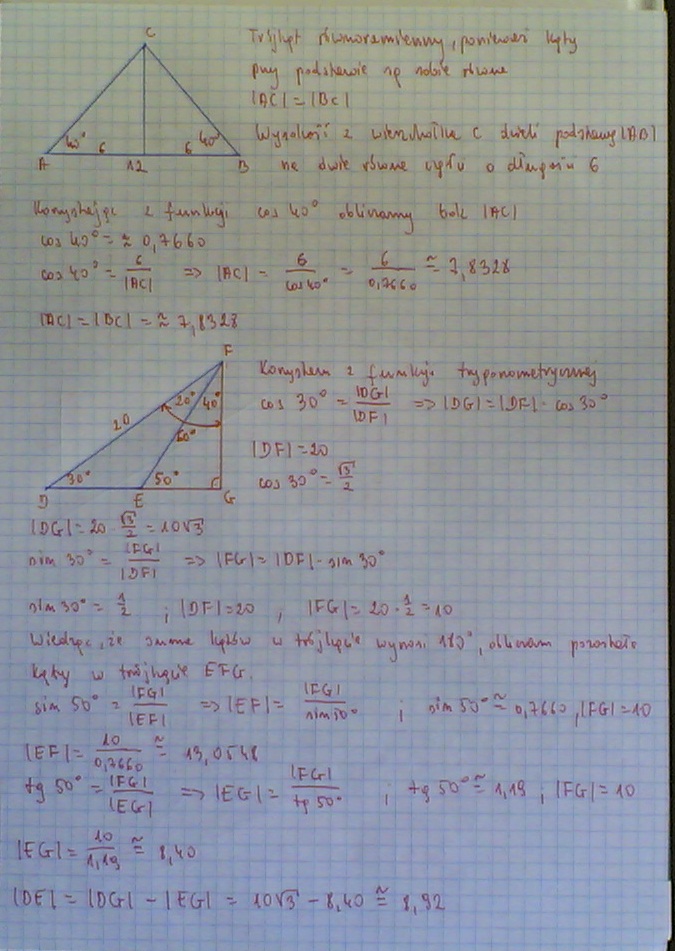 C
Trójkąt równoramienny, ponieważ kąty
przy podstawie są sobie równe
|AC| = |BC|
Wysokość z wierzchołka C dzieli podstawę |AB|
na dwie równe części o długości 6
40° 6 6 40°
A 12 B
Korzystając z funkcji cos 40° obliczamy bok |AC|
cos 40° = ≈ 0,7660
cos 40° = 6/|AC| => |AC| = 6/cos 40° = 6/0,7660 ≅ 7,8328
|AC| = |BC| = ≈ 7,8328
F
Korzystam z funkcji trygonometrycznej
20° 40°
cos 30° = |DG|/|DF| => |DG| = |DF| · cos 30°
20
60°
|DF| = 20
30° 50°
cos 30° = √3/2
D E G
|DG| = 20 · √3/2 = 10√3
sin 30° = |FG|/|DF| => |FG| = |DF| · sin 30°
sin 30° = 1/2 ; |DF| = 20 ; |FG| = 20 · 1/2 = 10
Wiedząc, że suma kątów w trójkącie wynosi 180°, obliczam pozostałe
kąty w trójkącie EFG.
sin 50° = |FG|/|EF| => |EF| = |FG|/sin 50° ; sin 50° ≅ 0,7660, |FG| = 10
|EF| = 10/0,7660 ≅ 13,0548
tg 50° = |FG|/|EG| => |EG| = |FG|/tg 50° ; tg 50° ≅ 1,19 ; |FG| = 10
|EG| = 10/1,19 ≅ 8,40
|DE| = |DG| - |EG| = 10√3 - 8,40 ≅ 8,92